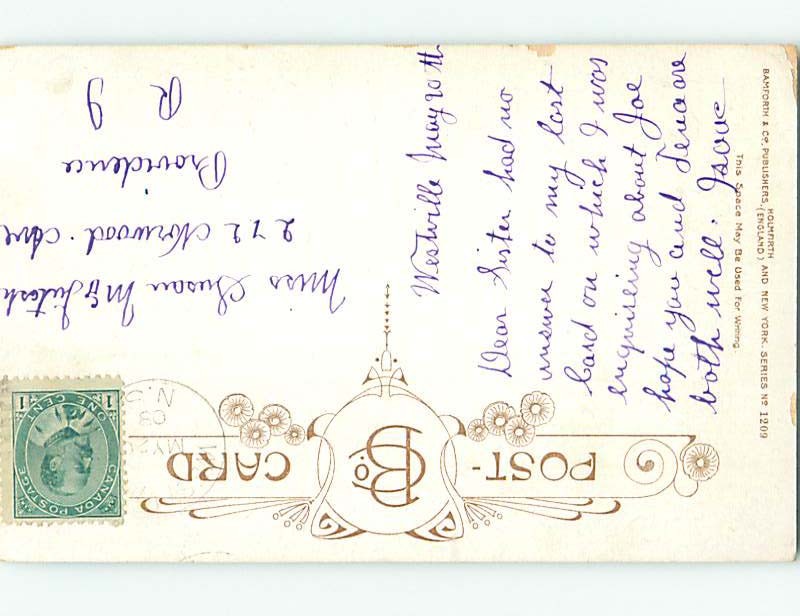 POST-CARD
BCo
BAMFORTH & Co. PUBLISHERS, HOLMFIRTH (ENGLAND) AND NEW YORK. SERIES No 1209
This Space May Be Used For Writing
Westville May 20th
Dear Sister had no
answer to my last
Card on which I was
enquireing about Joe
hope you and are
both well.
Miss Susan McIntosh
272 Norwood. Ave
Providence
R I
CANADA POSTAGE
ONE CENT
1 1
MY 2
08
N.S